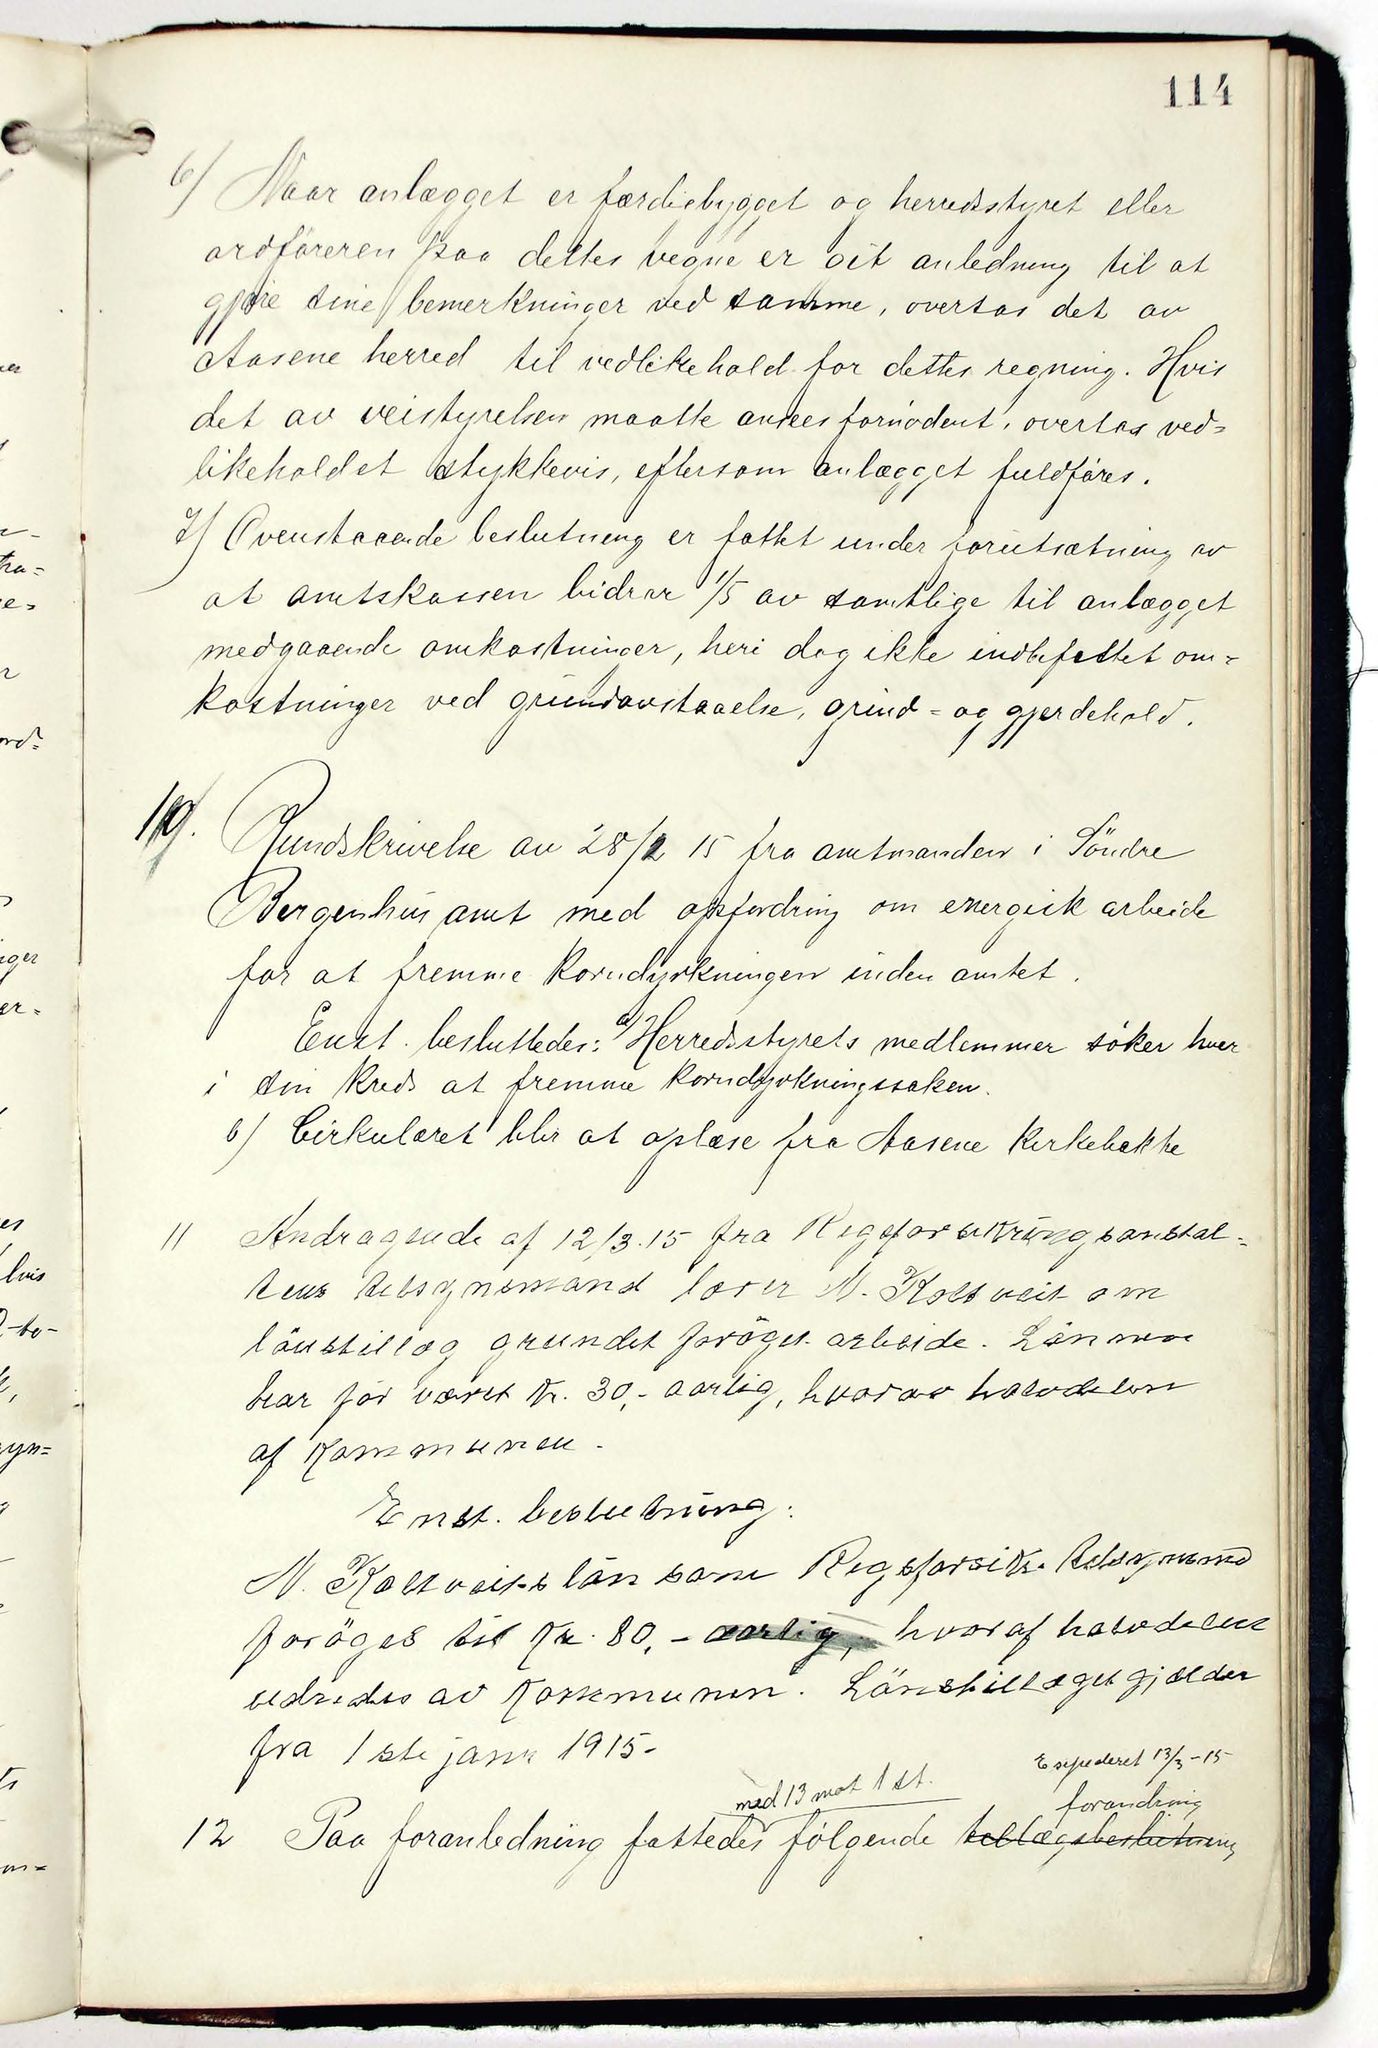 114
6) Naar anlægget er færdigbygget og herredsstyret eller
ordføreren paa dettes vegne er git anledning til at
gjøre sine bemerkninger ved samme, overtas det av
Aasene herred til vedlikehold for dettes regning. Hvis
det av veistyrelsen maatte ansees fornødent, overtas ved-
likeholdet stykkevis, eftersom anlægget fuldføres.
7) Ovenstaaende beslutning er fattet under forutsætning av
at amtskassen bidrar 1/5 av samtlige til anlægget
medgaaende omkostninger, heri dog ikke indbefattet om-
kostninger ved grundavstaaelse, grind- og gjerdehold.
10. Rundskrivelse av 28/2 15 fra amtmanden i Söndre
Bergenhus amt med opfordring om energisk arbeide
for at fremme korndyrkningen inden amtet.
Enst. besluttedes: a) Herredsstyrets medlemmer søker hver
i sin kreds at fremme korndyrkningssaken.
b) Cirkulæret blir at oplæse fra Aasene kirkebakke
11 Andragende af 12/3.15 fra Rigsforsikringsanstal-
tens tilsynsmand lærer N. Koltveit om
lönstillæg grundet foröget arbeide. Lönnen
har før været kr. 30,- aarlig, hvorav halvdelen
af Kommunen.
Enst. beslutning:
N. Koltveits lön som Rigsforsikr. tilsynsmd
foröges til kr. 80,- aarlig, hvoraf halvdelen
udredes av Kommunen. Lönstillæget gjælder
fra 1ste janr 1915-
Expederet 13/3-15
med 13 mot 1 st.
forandring
12 Paa foranledning fattedes følgende tillægsbeslutning